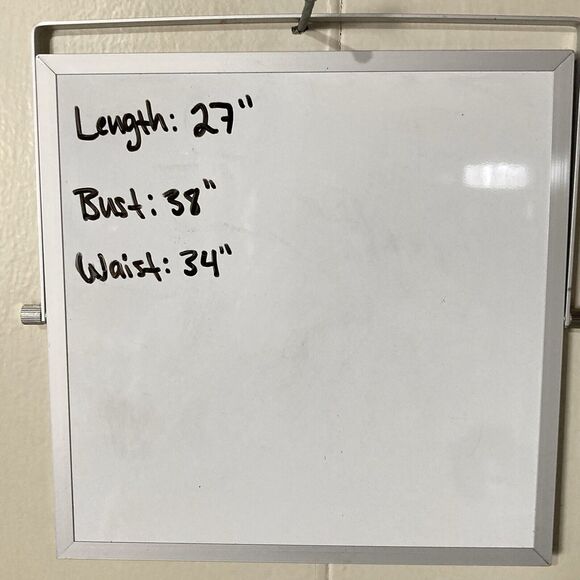 Length: 27"
Bust: 38"
Waist: 34"